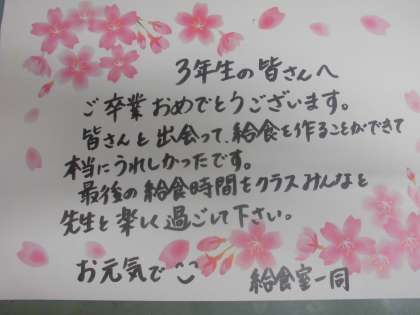 3年生の皆さんへ
ご卒業おめでとうございます。
皆さんと出会って、給食を作ることができて
本当にうれしかったです。
最後の給食時間をクラスみんなと
先生と楽しく過ごして下さい。
お元気で
給食室一同